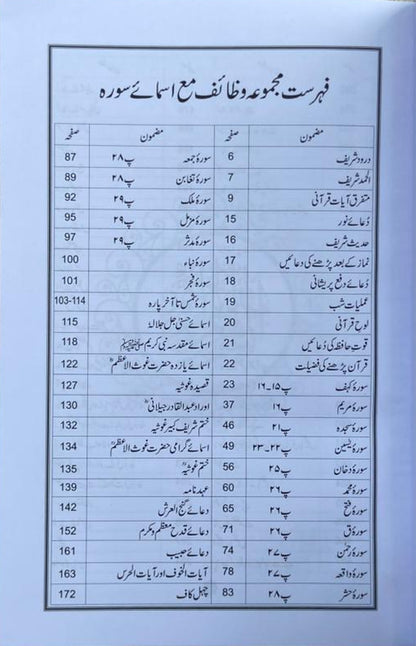 فہرست مجموعہ وظائف مع اسمائے سورہ
مضمون صفحہ مضمون صفحہ
درود شریف 6 سورۂ جمعہ پ ۲۸ 87
الحمد شریف 7 سورۂ تغابن پ ۲۸ 89
متفرق آیات قرآنی 9 سورۂ ملک پ ۲۹ 92
دُعائے نور 15 سورۂ مزمل پ ۲۹ 95
حدیث شریف 16 سورۂ مدثر پ ۲۹ 97
نماز کے بعد پڑھنے کی دعائیں 17 سورۂ نباء 100
دعائے دفع پریشانی 18 سورۂ فجر 101
عملیات شب 19 سورۂ شمس تا آخر پارہ 103-114
لوح قرآنی 20 اسمائے حسنیٰ جل جلالہٗ 115
قوت حافظہ کی دعائیں 21 اسمائے مقدسہ نبی کریم ﷺ 118
قرآن پڑھنے کی فضیلت 22 اسمائے یازدہ حضرت غوث الاعظمؓ 122
سورۂ کہف پ ۱۵-۱۶ 23 قصیدہ غوثیہ 127
سورۂ مریم پ ۱۶ 37 اوراد عبدالقادر جیلانیؓ 130
سورۂ سجدہ پ ۲۱ 46 ختم شریف کبیر غوثیہ 132
سورۂ یٰسین پ ۲۲-۲۳ 49 اسمائے گرامی حضرت غوث الاعظمؓ 134
سورۂ دخان پ ۲۵ 56 ختم غوثیہ 135
سورۂ محمدؐ پ ۲۶ 60 عہد نامہ 139
سورۂ فتح پ ۲۶ 65 دعائے گنج العرش 142
سورۂ ق پ ۲۶ 71 دعائے قدح معظم و مکرم 152
سورۂ رحمٰن پ ۲۷ 74 دعائے حبیب 161
سورۂ واقعہ پ ۲۷ 78 آیات الخوف اور آیات الحرس 163
سورۂ حشر پ ۲۸ 83 چہل کاف 172